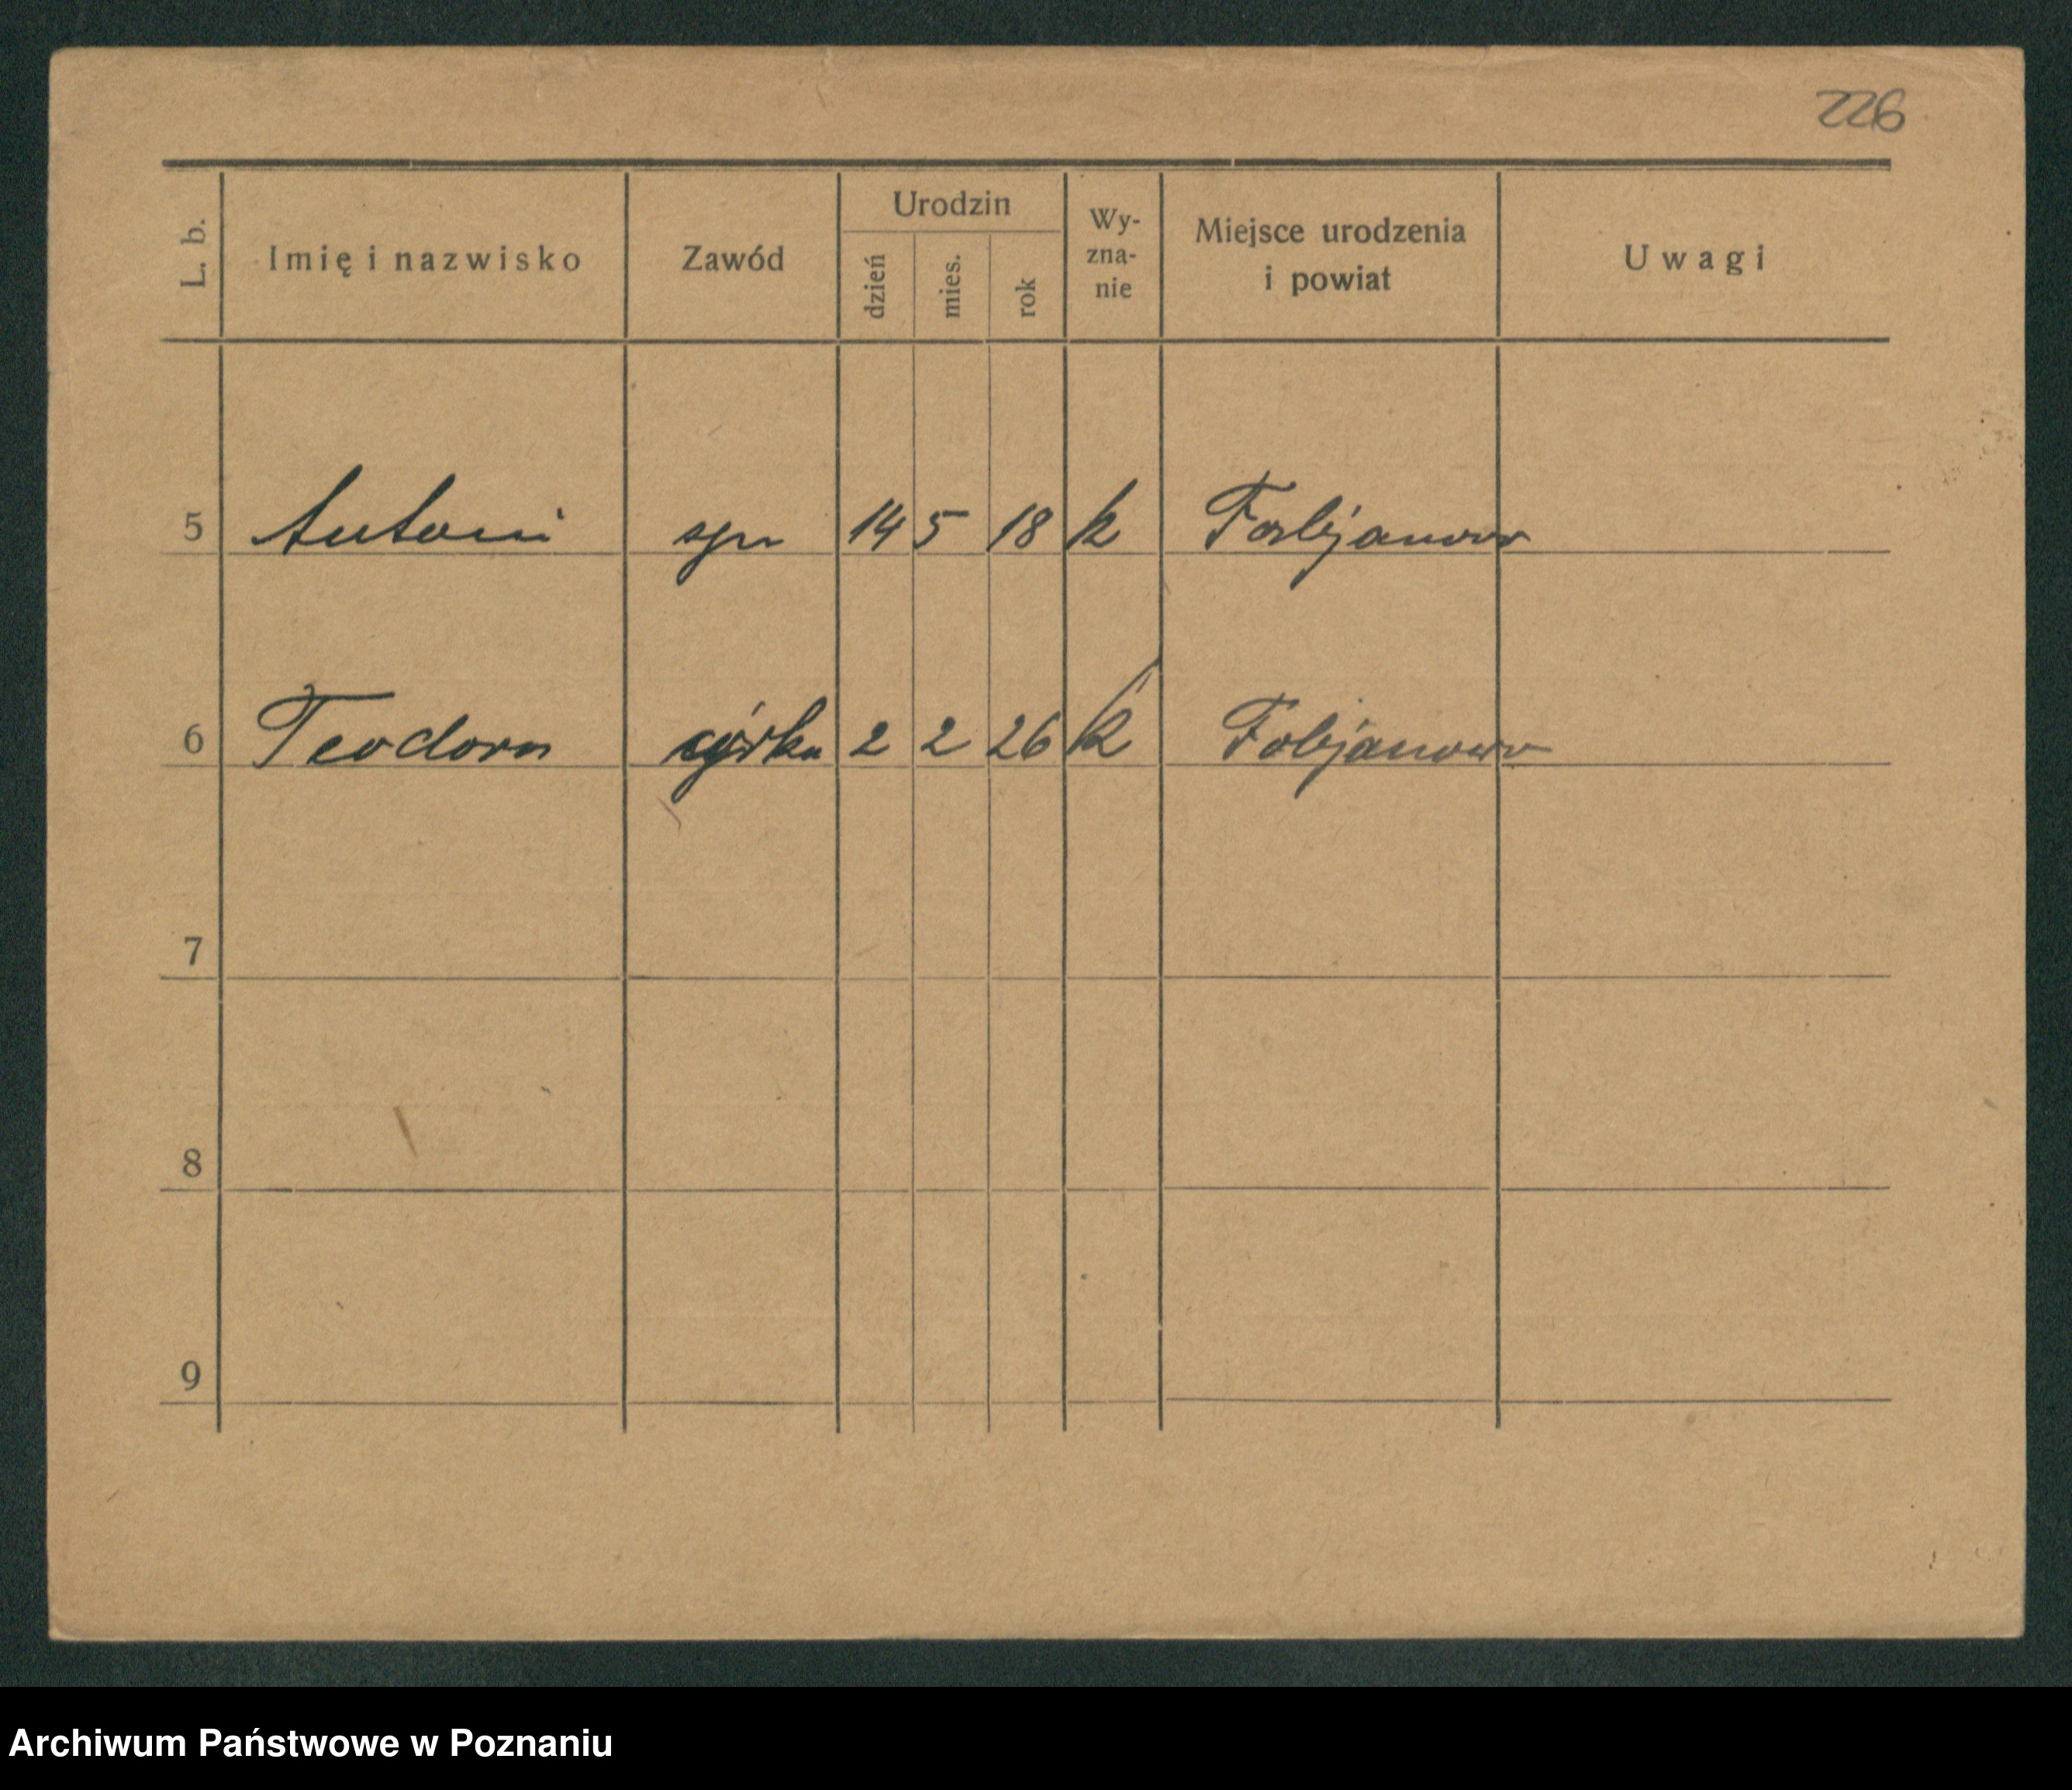 226
L. b. Imię i nazwisko Zawód Urodzin dzień mies. rok Wy-zna-nie Miejsce urodzenia i powiat Uwagi
5 Antoni syn 14 5 18 k Fabjanowo
6 Teodora córka 2 2 26 k Fabjanowo
7
8
9
Archiwum Państwowe w Poznaniu